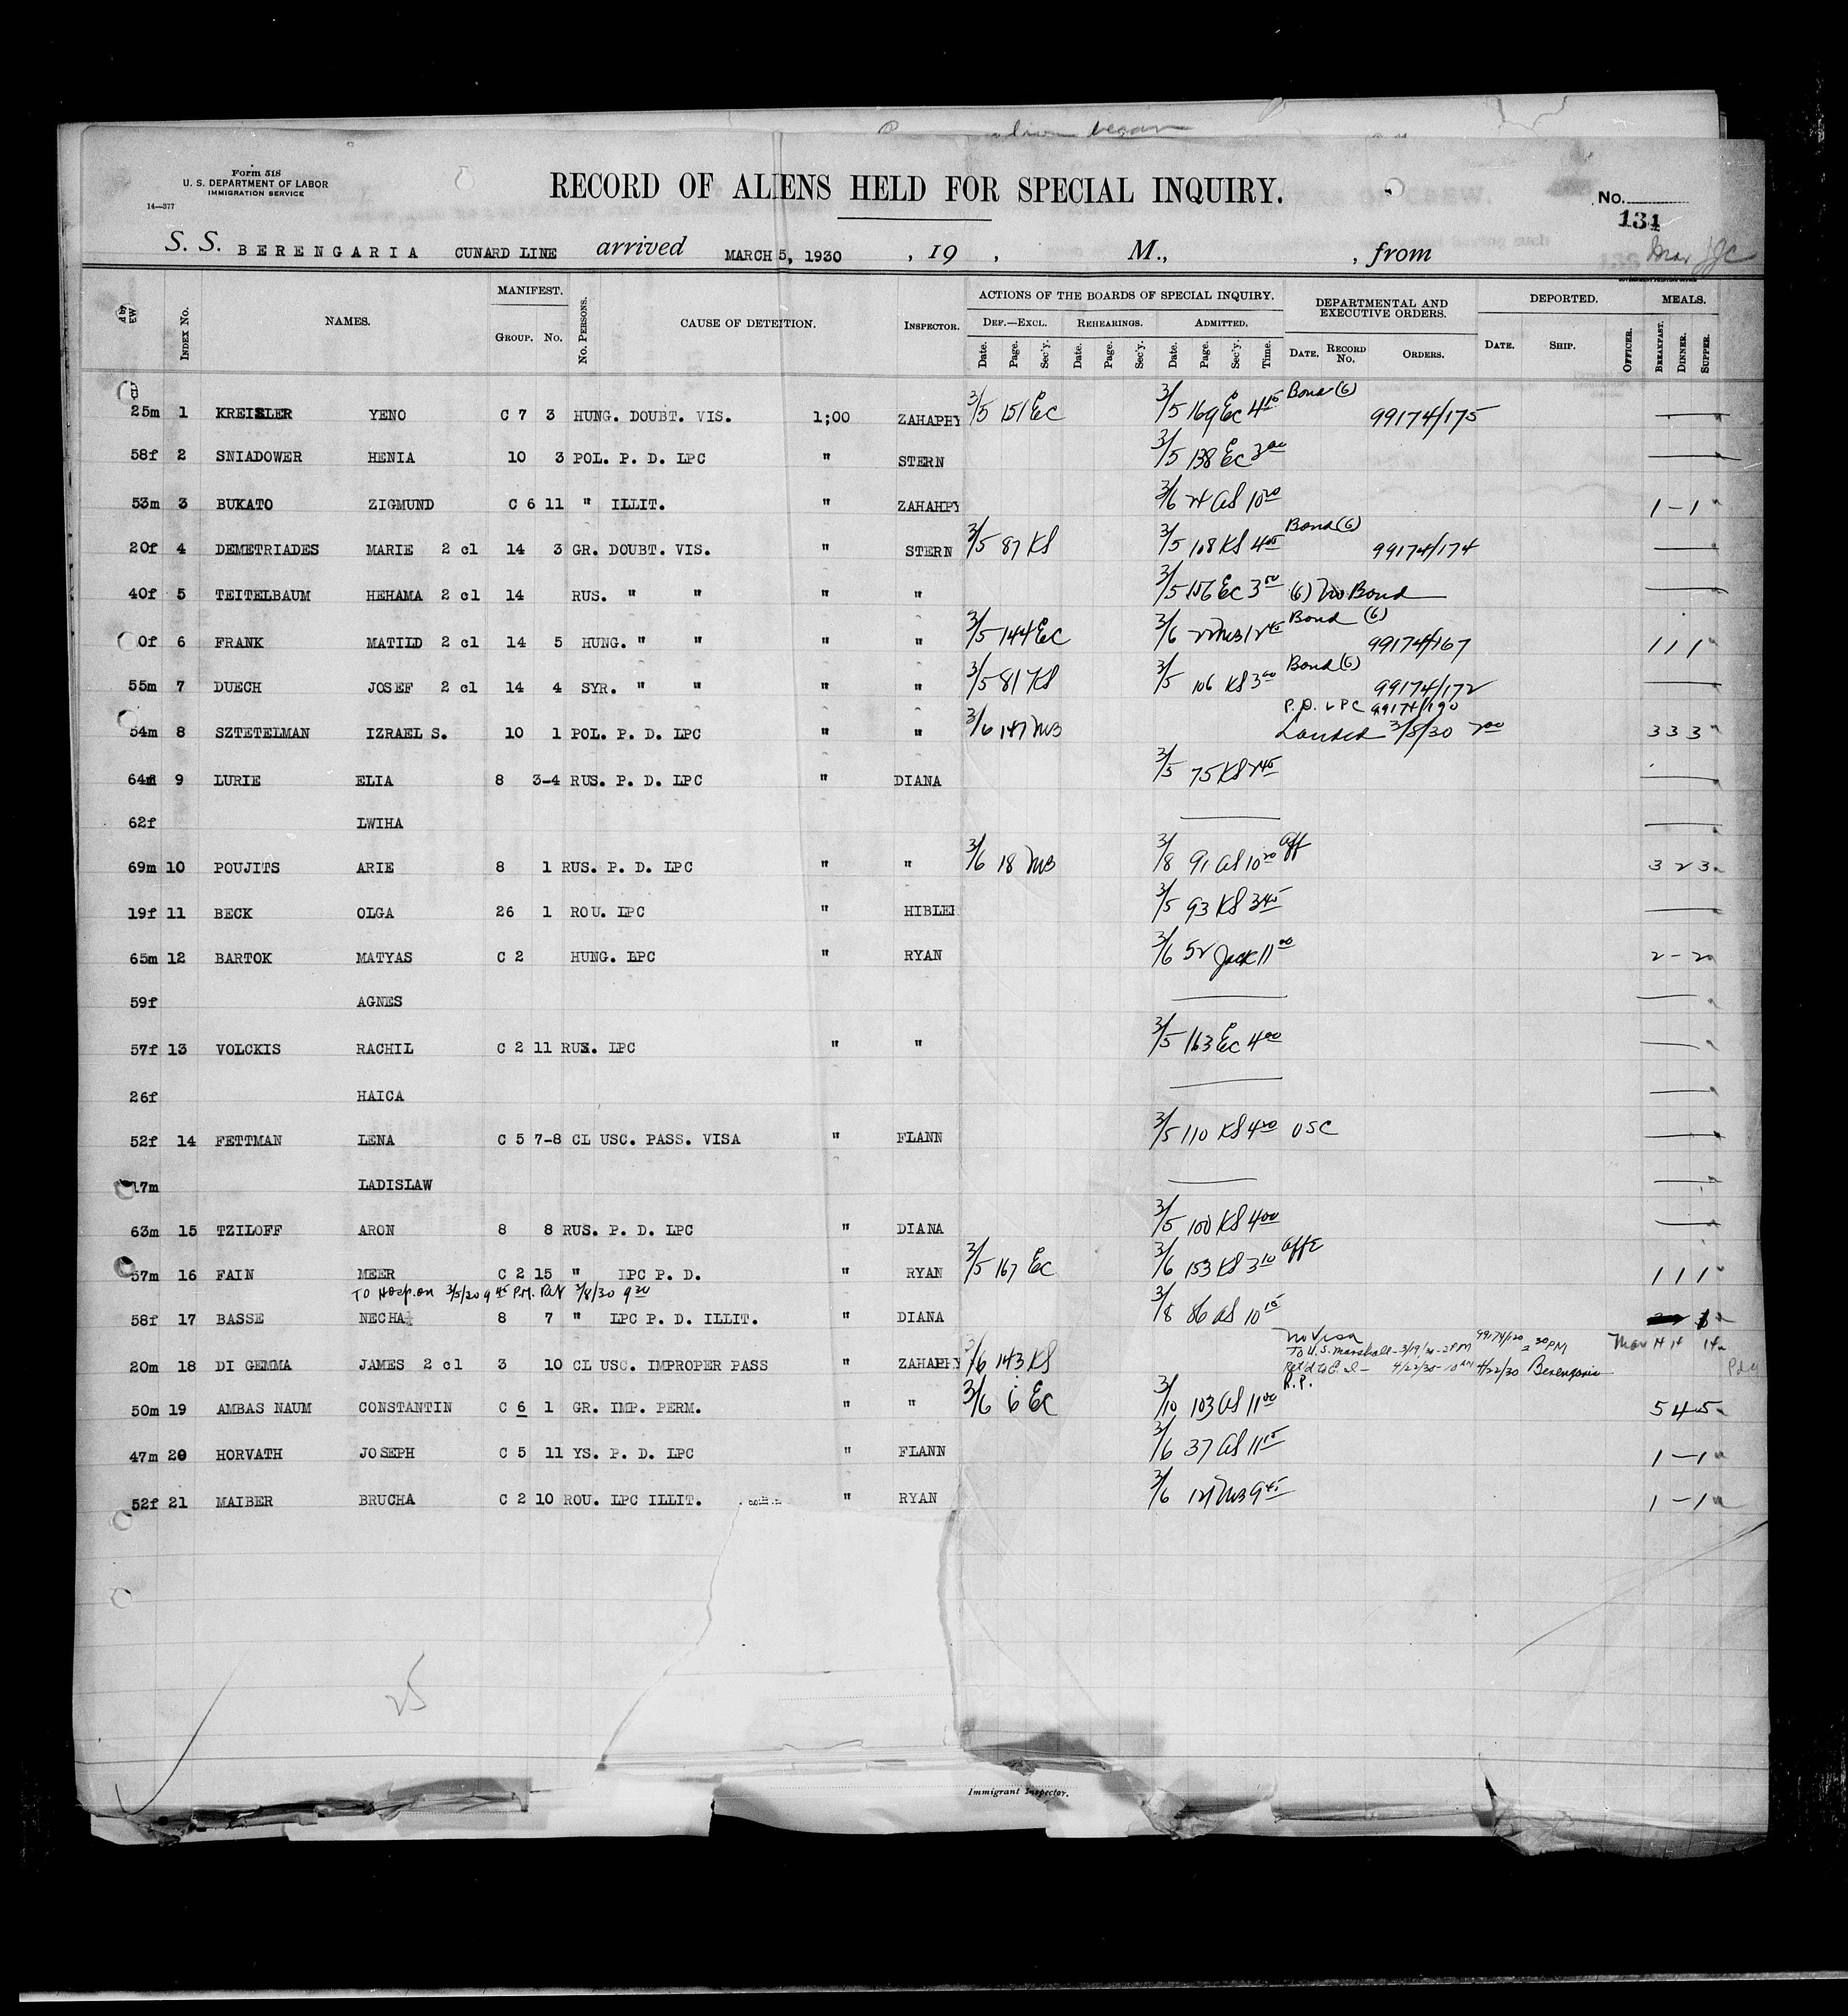 began
Form 518
U. S. DEPARTMENT OF LABOR
IMMIGRATION SERVICE
14—377
RECORD OF ALIENS HELD FOR SPECIAL INQUIRY.
No.
134
S. S. BERENGARIA CUNARD LINE arrived MARCH 5, 1930 , 19 , M., , from
MANIFEST. ACTIONS OF THE BOARDS OF SPECIAL INQUIRY. DEPARTMENTAL AND EXECUTIVE ORDERS. DEPORTED. MEALS.
Index No. NAMES. Group. No. No. Persons. CAUSE OF DETEITION. Inspector. Def.—Excl. Rehearings. Admitted.
Date. Page. Sec'y. Date. Page. Sec'y. Date. Page. Sec'y. Time. Date. Record No. Orders. Date. Ship. Officer. Breakfast. Dinner. Supper.
25m 1 KREISLER YENO C 7 3 HUNG. DOUBT. VIS. 1;00 ZAHAPHY 3/5 151 EC 3/5 169 EC 4 15 Bond (G) 99174/175
58f 2 SNIADOWER HENIA 10 3 POL. P. D. LPC " STERN 3/5 138 EC 3 00
53m 3 BUKATO ZIGMUND C 6 11 " ILLIT. " ZAHAHPY 3/6 24 AS 10 20 1 – 1
20f 4 DEMETRIADES MARIE 2 cl 14 3 GR. DOUBT. VIS. " STERN 3/5 87 KS 3/5 108 KS 4 05 Bond (G) 99174/174
40f 5 TEITELBAUM HEHAMA 2 cl 14 RUS. " " " " 3/5 156 EC 3 50 (G) No Bond
0f 6 FRANK MATILD 2 cl 14 5 HUNG. " " " " 3/5 144 EC 3/6 22 MB 12 45 Bond (G) 99174/167 1 1 1
55m 7 DUECH JOSEF 2 cl 14 4 SYR. " " " " 3/5 81 KS 3/5 106 KS 3 00 Bond (G) 99174/172
P. D. LPC 99174/190
54m 8 SZTETELMAN IZRAEL S. 10 1 POL. P. D. LPC " " 3/6 147 MB Landed 3/8/30 2 00 3 3 3
64m 9 LURIE ELIA 8 3-4 RUS. P. D. LPC " DIANA 3/5 75 KS 2 45
62f LWIHA
69m 10 POUJITS ARIE 8 1 RUS. P. D. LPC " " 3/6 18 MB 3/8 91 AS 10 20 Aff 3 2 3
19f 11 BECK OLGA 26 1 ROU. LPC " HIBLER 3/5 93 KS 3 45
65m 12 BARTOK MATYAS C 2 HUNG. LPC " RYAN 3/6 52 Jack 11 00 2 – 2
59f AGNES
57f 13 VOLCKIS RACHIL C 2 11 RUS. LPC " " 3/5 163 EC 4 00
26f HAICA
52f 14 FETTMAN LENA C 5 7-8 CL USC. PASS. VISA " FLANN 3/5 110 KS 4 20 USC
17m LADISLAW
63m 15 TZILOFF ARON 8 8 RUS. P. D. LPC " DIANA 3/5 100 KS 4 00
57m 16 FAIN MEER C 2 15 " LPC P. D. " RYAN 3/5 167 EC 3/6 153 KS 3 10 1 1 1
To Hosp. on 3/5/30 9 45 P.M. Ret 3/8/30 9 20
58f 17 BASSE NECHA 8 7 " LPC P. D. ILLIT. " DIANA 3/8 86 AS 10 15
No Visa 99174/120
To U.S. Marshall – 3/19/30 – 2 PM 2 30 PM
20m 18 DI GEMMA JAMES 2 cl 3 10 CL USC. IMPROPER PASS " ZAHAPHY 3/6 143 KS Ret'd to E.I – 4/22/30 – 10 AM 4/22/30 Berengaria
R. P.
50m 19 AMBAS NAUM CONSTANTIN C 6 1 GR. IMP. PERM. " " 3/6 6 EC 3/10 103 AS 11 00 5 4 5
47m 20 HORVATH JOSEPH C 5 11 YS. P. D. LPC " FLANN 3/6 37 AS 11 15 1 – 1
52f 21 MAIBER BRUCHA C 2 10 ROU. LPC ILLIT. " RYAN 3/6 121 MB 9 45 1 – 1
25
Immigrant Inspector.